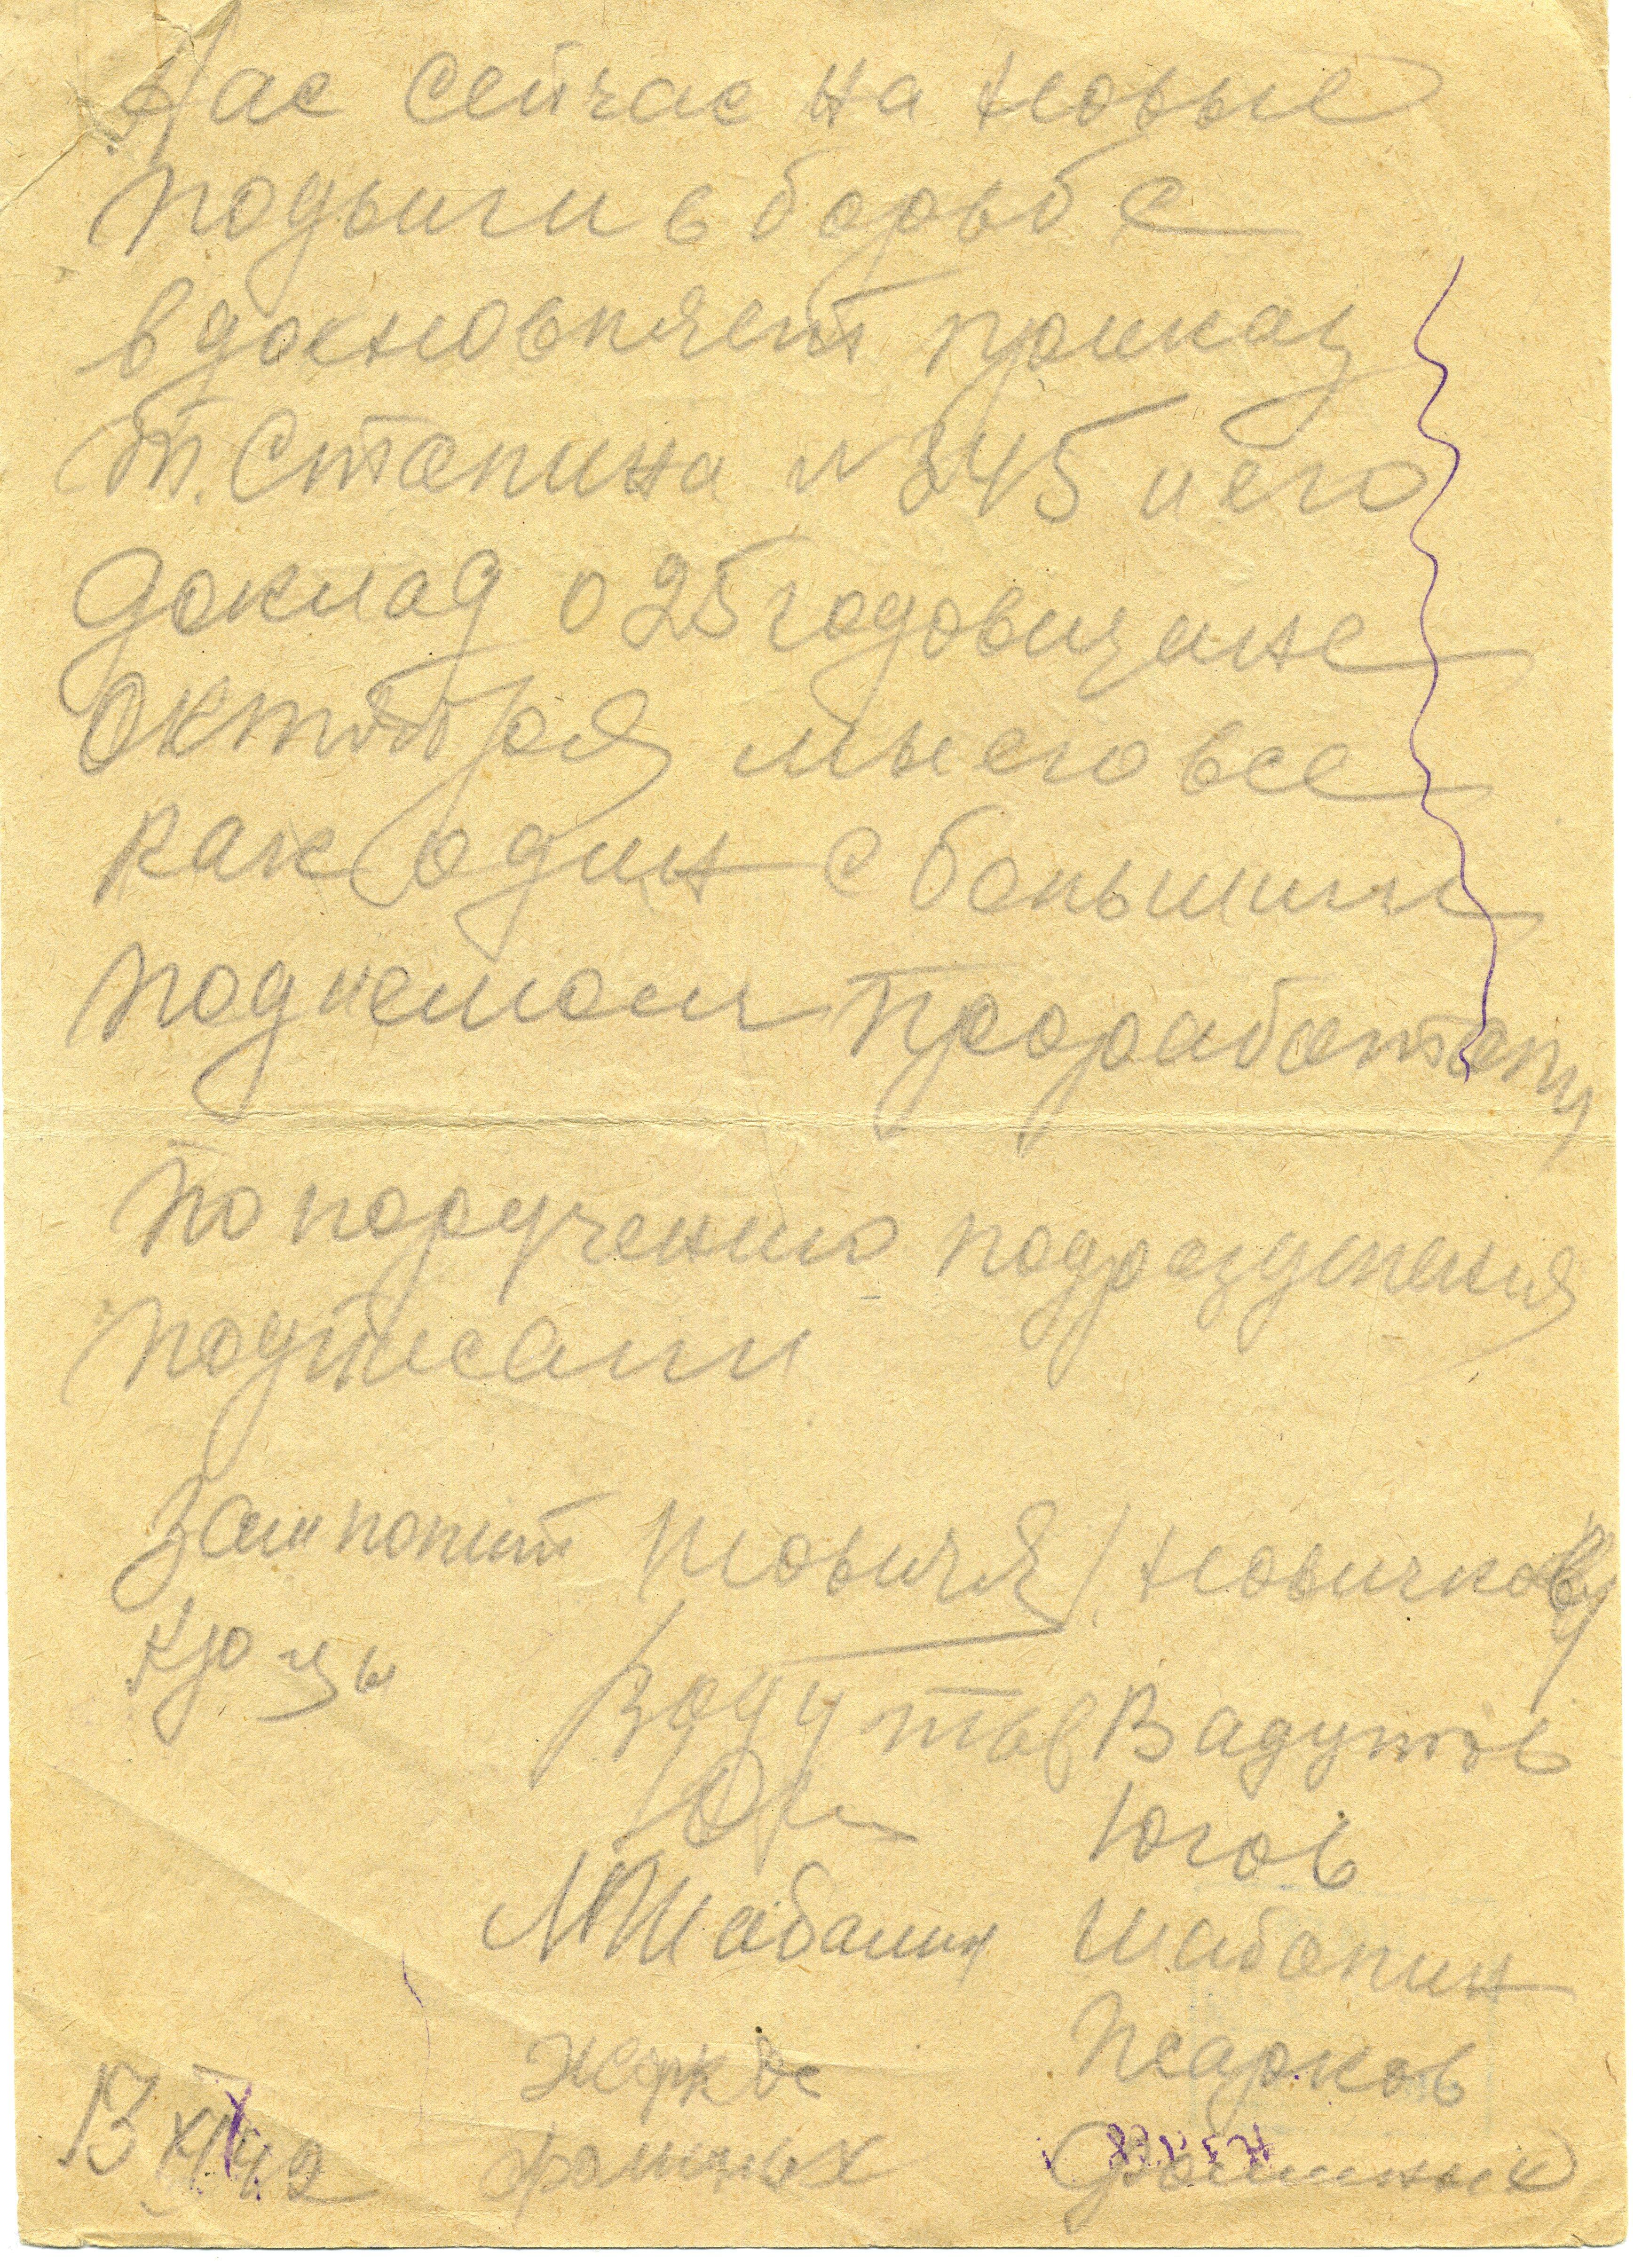 Нас сейчас на новые
подвиги в борьбе
вдохновляет приказ
т. Сталина № 345 и его
доклад о 25 годовщине
октября мы его все
как один с большим
под'емом проработали
По поручению подразделения
подписали
Зам полит Новичков
Юдутов Вадутов
Югов
М Шабалин Шабалин
Жарков Жарков
Фоминых Фоминых
13 XI 42